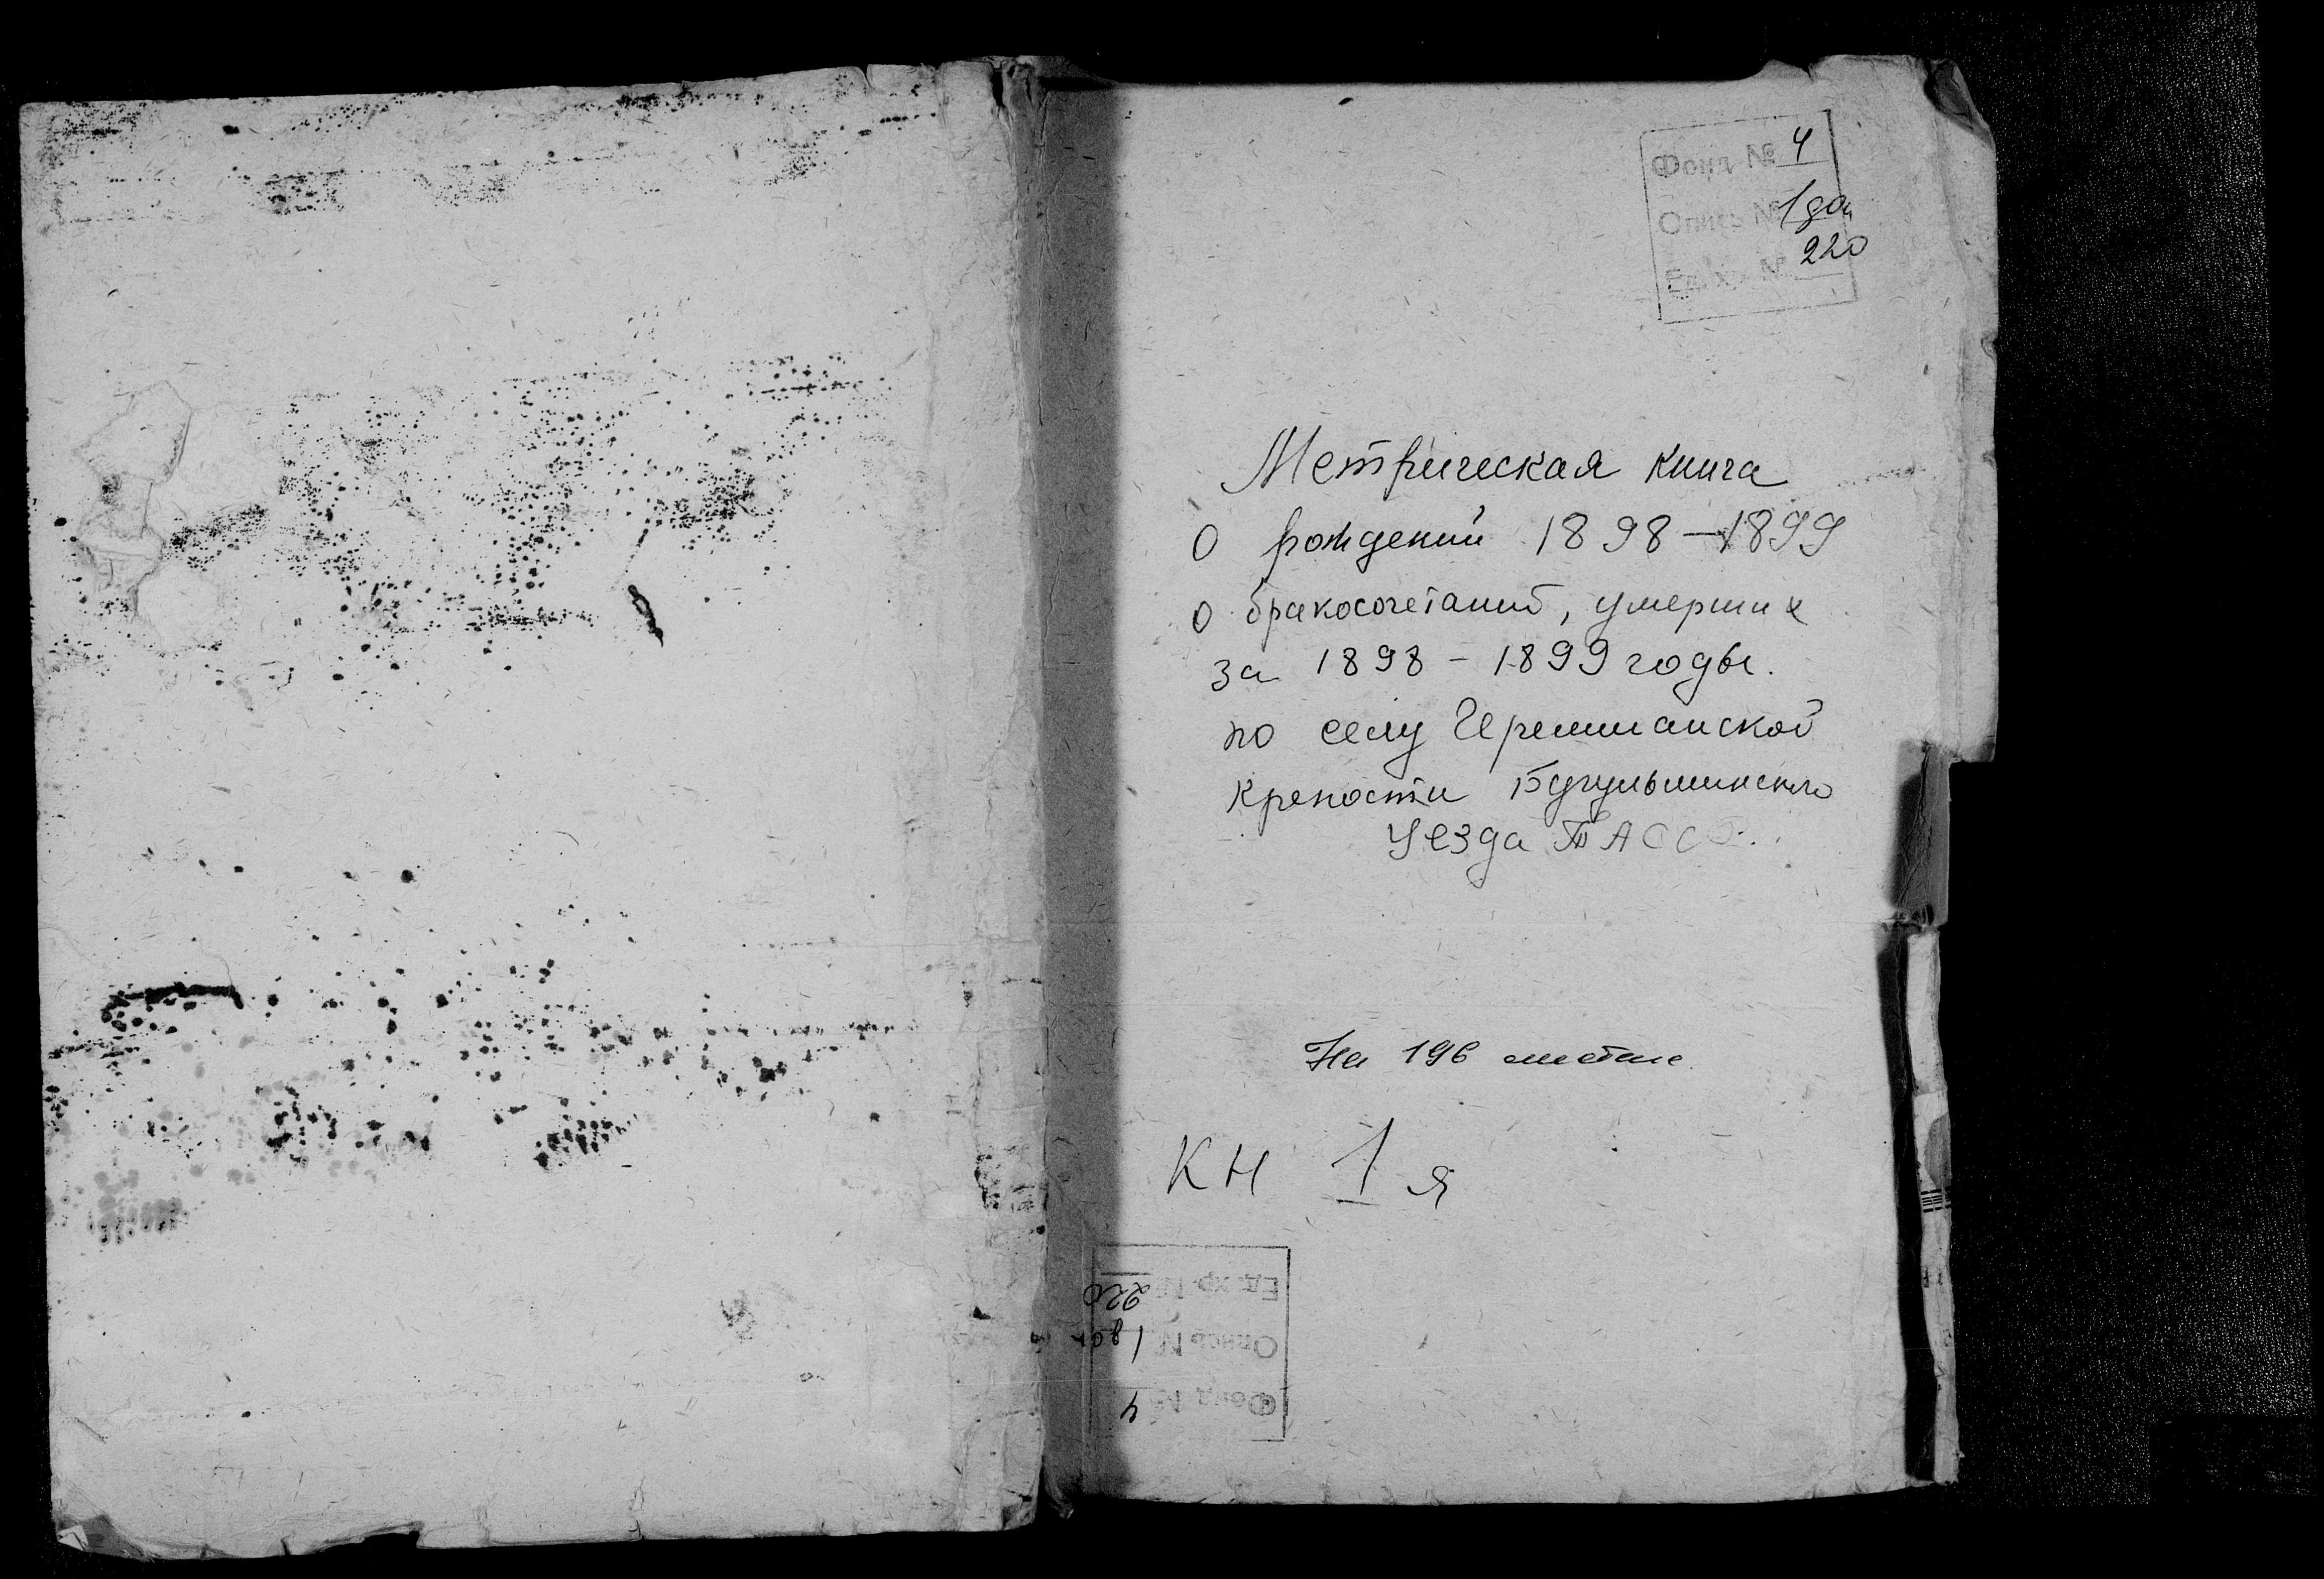 Фонд № 4
Опись № 1 доп
Ед. хр. № 220
Метрическая книга
О рождений 1898-1899
о бракосочетаний, умерших
за 1898 - 1899 годы.
по селу Черемшанской
крепости Бугульминского
Уезда ТАССР.
На 196 листах
КН 1 я
Ед. хр. № 220
Опись № 1 доп
Фонд № 4